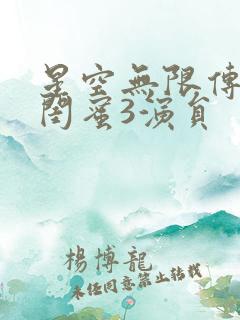 星空無限傳
閨蜜3-演員
楊博龍
未经同意禁止转载